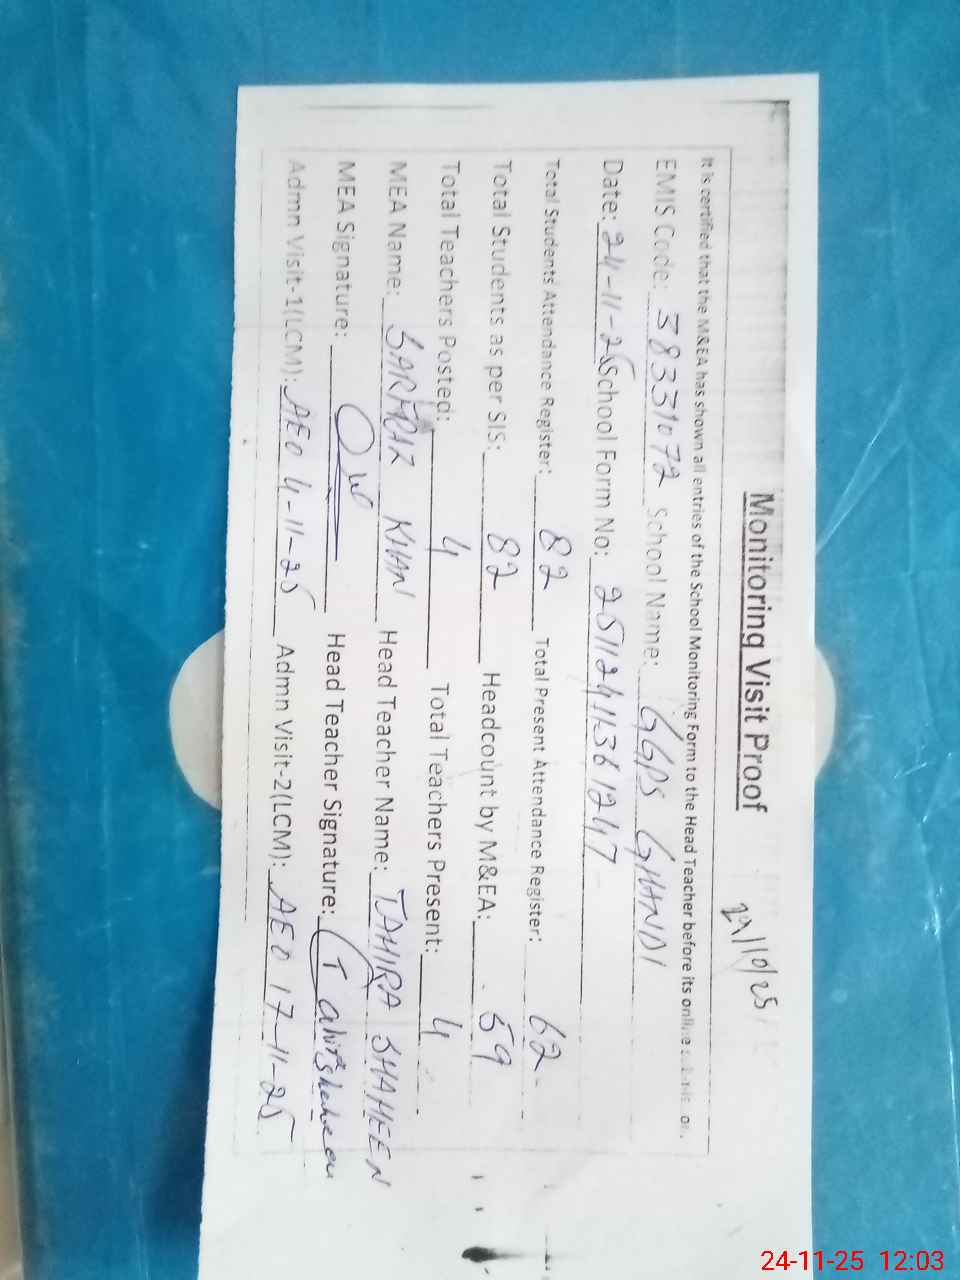 Monitoring Visit Proof
29/10/25
It is certified that the M&EA has shown all entries of the School Monitoring Form to the Head Teacher before its online
EMIS Code: 38331072 School Name: GGPS GHUNDI
Date: 24-11-25 School Form No:
Total Students Attendance Register: 82 Total Present Attendance Register: 62
Total Students as per SIS: 82 Headcount by M&EA: 59
Total Teachers Posted: 4 Total Teachers Present: 4
MEA Name: SARFRAZ KHAN Head Teacher Name: TAHIRA SHAHEEN
MEA Signature: Head Teacher Signature:
Admn Visit-1(LCM): AEO 4-11-25 Admn Visit-2(LCM): AEO 17-11-25
24-11-25 12:03